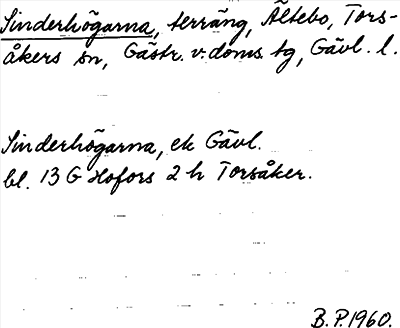 Sinderhögarna, terräng, Ältebo, Tors-
åkers sn, Gästr. v. doms. tg, Gävl. l.
Sinderhögarna, ek Gävl.
bl. 13 G Hofors 2 h Torsåker.
B.P. 1960.